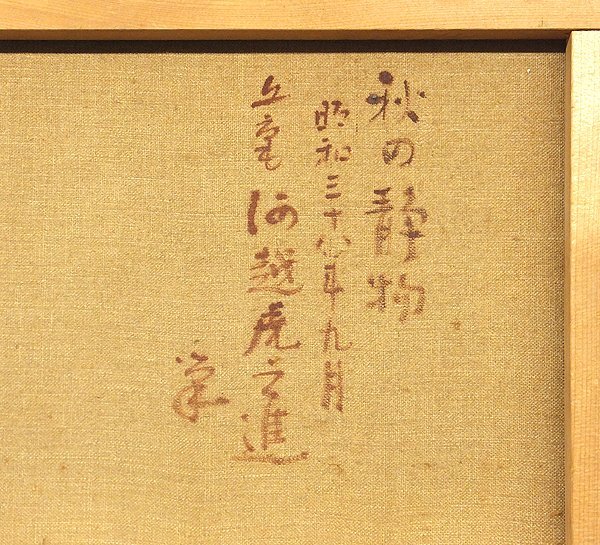 秋の静物
昭和三十八年九月
河越虎之進
筆